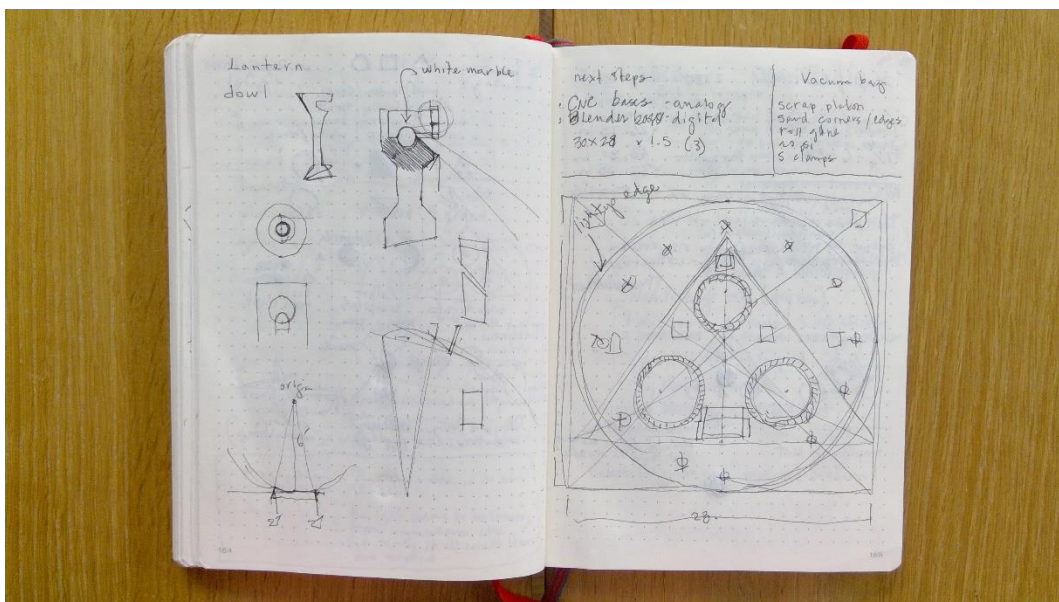 Lantern
dowl
white marble
6'
21
21
164
next steps
· CNC bases - analog
· Blender base - digital
30x28 x 1.5 (3)
Vacuum bag
scrap
sand corners/edges
roll glue
20 psi
5 clamps
edge
28
165